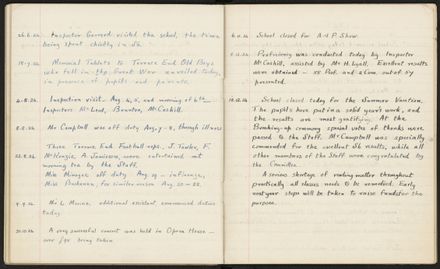 Inspector Garrard visited the school, the time
being spent chiefly in S6.
Memorial Tablets to Terrace End Old Boys
who fell in the Great War unveiled today,
in presence of pupils and parents.
Inspection visit. Aug. 4, 5, and morning of 6th
Inspectors McLeod, McCaskill.
Mr Campbell was off duty Aug. 7-8, through illness
Three Terrace End Football reps., J. Towler, F.
McKenzie, A. Jamieson, were entertained at
morning tea by the Staff.
Miss off duty Aug. 19 - influenza,
Miss Buchanan, for similar reason Aug. 20-22.
Mr L. Munro, additional assistant commenced duties
today
A very successful concert was held in Opera House -
over being taken
School closed for A & P. Show.
Proficiency was conducted today by Inspector
McCaskill, assisted by Mr H. Lyall. Excellent results
were obtained - 55 Prof. and 2 Com. out of 57
presented.
School closed today for the Summer Vacation.
The pupils have put in a solid year's work, and
the results are most gratifying. At the
Breaking-up ceremony special votes of thanks were
passed to the Staff. Mr Campbell was specially
commended for the excellent S6 results, while all
other members of the Staff were congratulated by
the Committee.
A serious shortage of reading matter throughout
practically all classes needs to be remedied. Early
next year steps will be taken to raise funds for the
purpose.